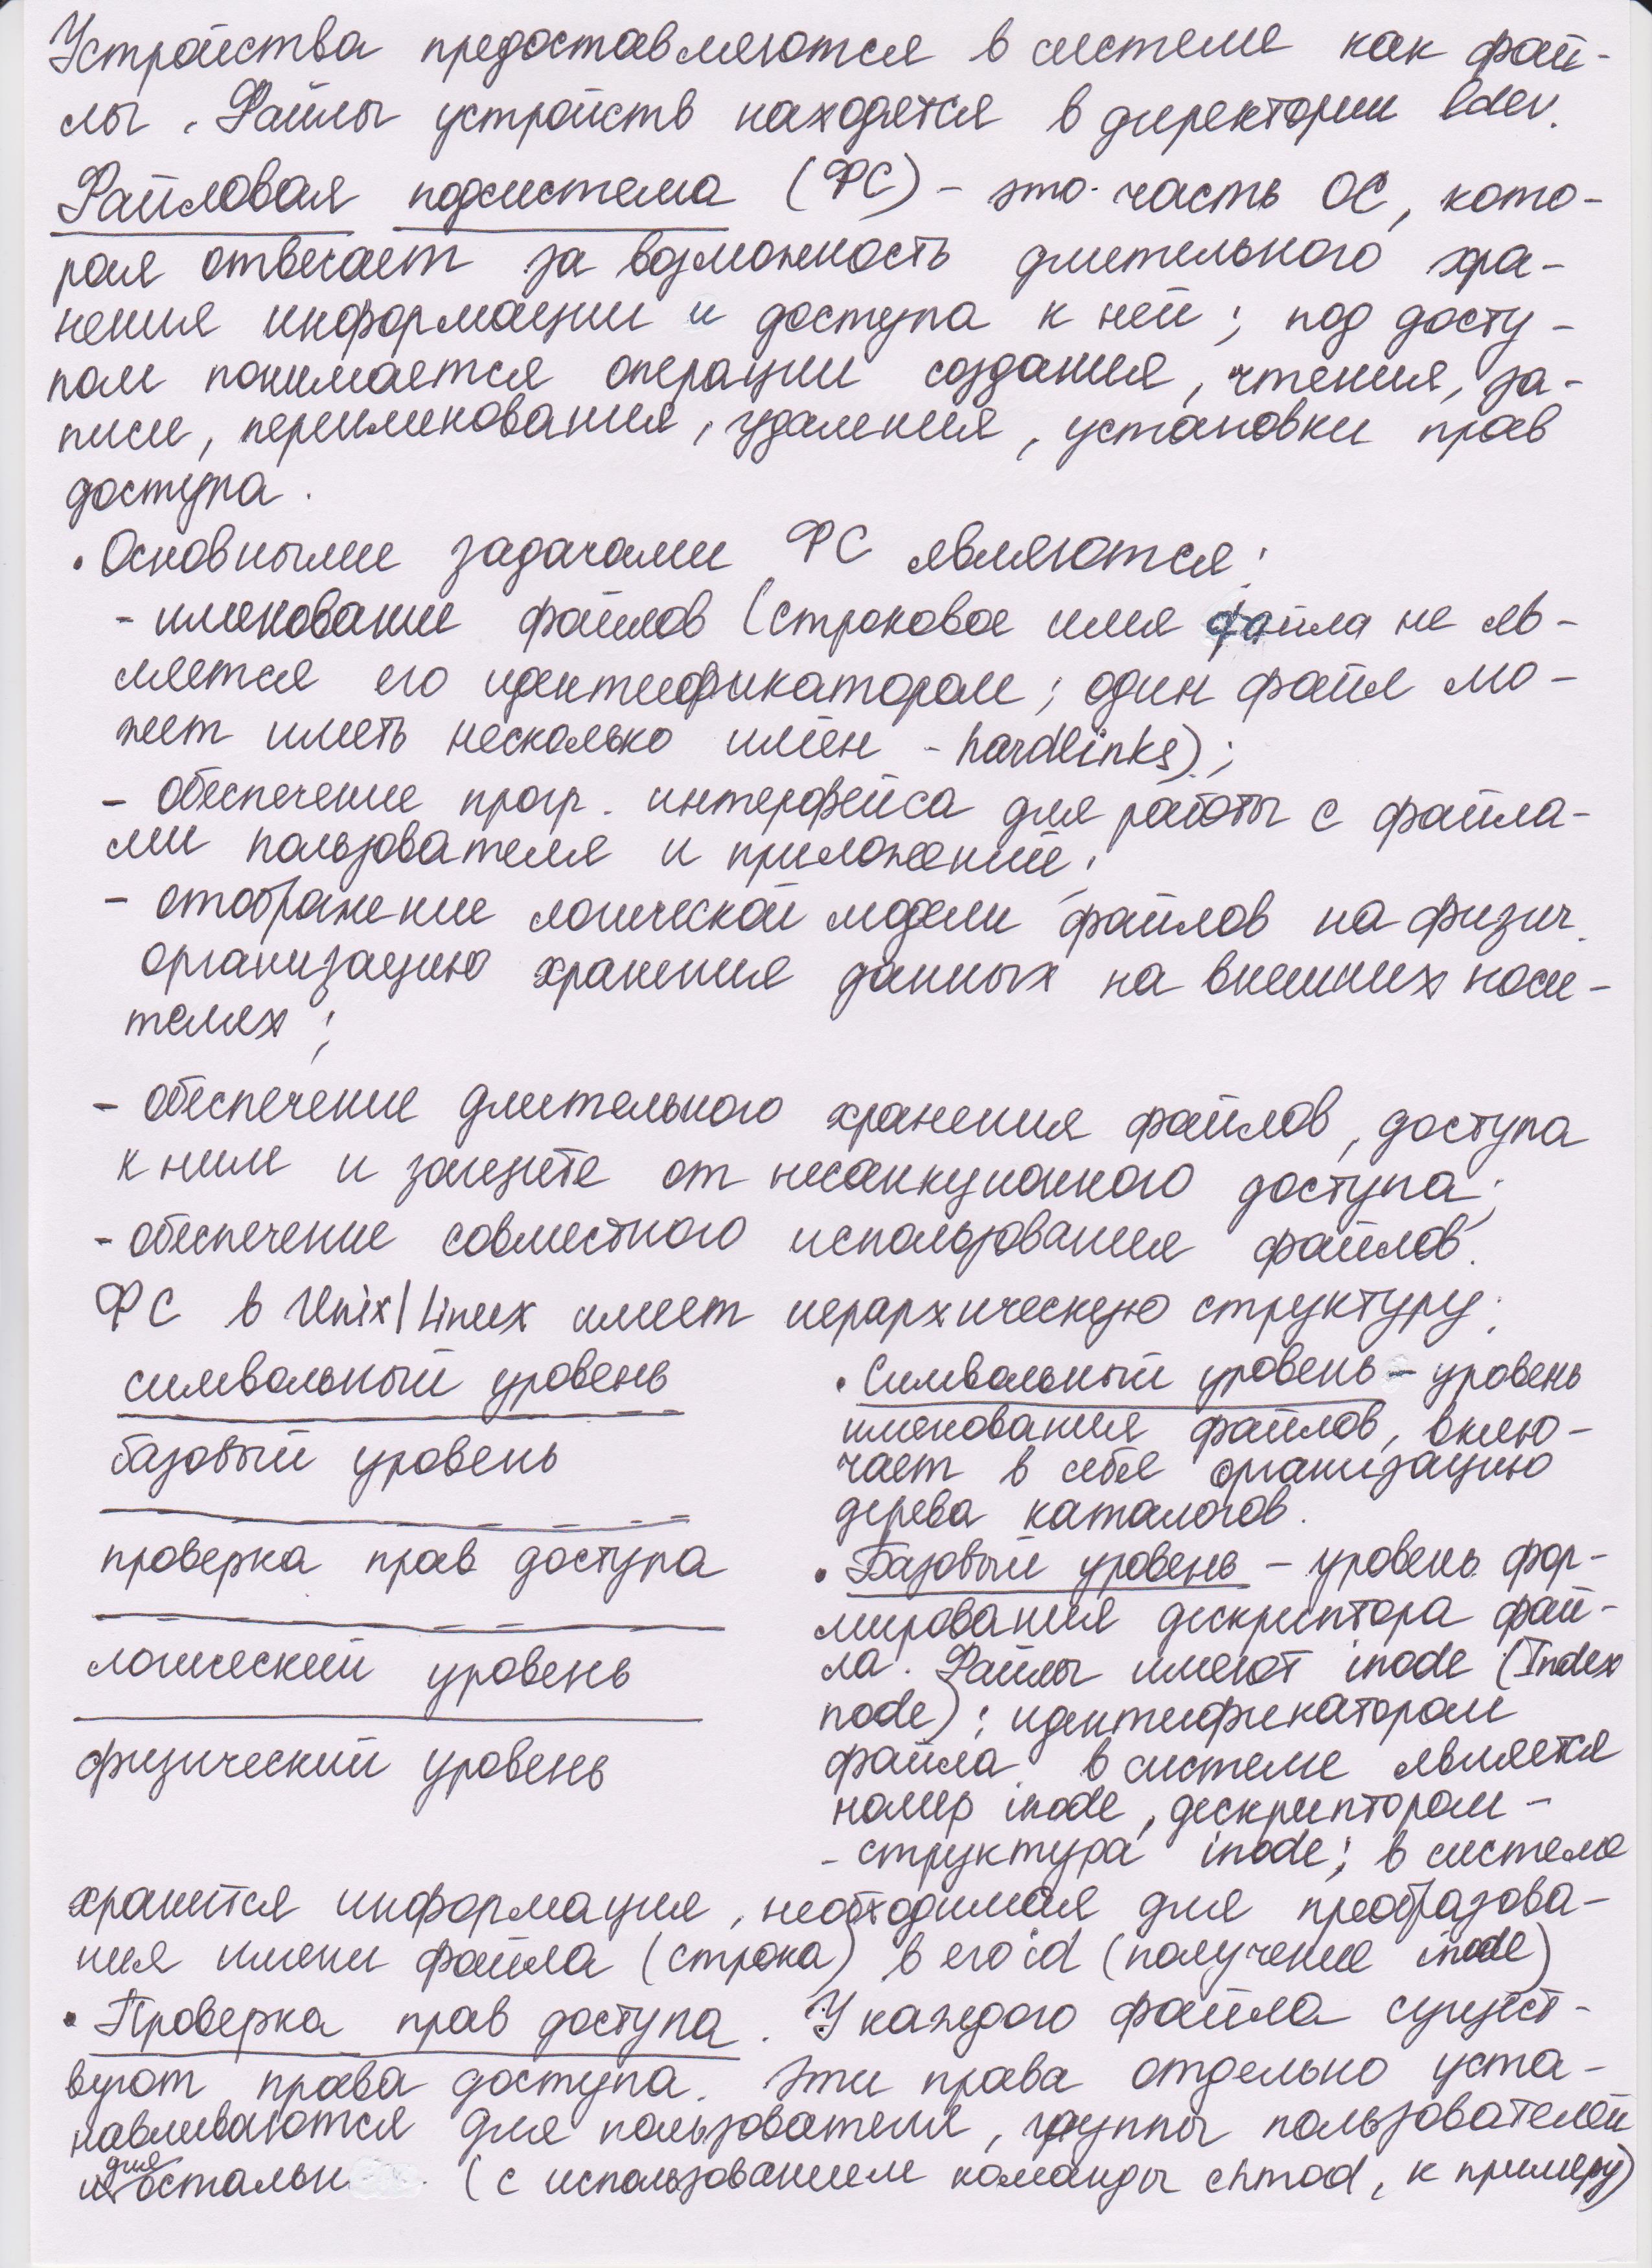 Устройства предоставляются в системе как фай-
лы. Файлы устройств находятся в директории /dev.
Файловая подсистема (ФС) – это часть ОС, кото-
рая отвечает за возможность длительного хра-
нения информации и доступа к ней; под досту-
пом понимается операции создания, чтения, за-
писи, переименования, удаления, установки прав
доступа.
• Основными задачами ФС являются:
- именование файлов (строковое имя файла не яв-
ляется его идентификатором; один файл мо-
жет иметь несколько имён - hardlinks);
- обеспечение прогр. интерфейса для работы с файла-
ми пользователя и приложений;
- отображение логической модели файлов на физич.
организацию хранения данных на внешних носи-
телях;
- обеспечение длительного хранения файлов, доступа
к ним и защите от несанкционного доступа;
- обеспечение совместного использования файлов.
ФС в Unix/Linux имеет иерархическую структуру:
символьный уровень
базовый уровень
проверка прав доступа
логический уровень
физический уровень
• Символьный уровень – уровень
именования файлов, вклю-
чает в себя организацию
дерева каталогов.
• Базовый уровень – уровень фор-
мирования дескриптора фай-
ла. Файлы имеют inode (Index
node); идентификатором
файла в системе является
номер inode, дескриптором –
- структура inode; в системе
хранится информация, необходимая для преобразова-
ния имени файла (строка) в его id (получение inode)
• Проверка прав доступа. У каждого файла сущест-
вуют права доступа. Эти права отдельно уста-
навливаются для пользователя, группы пользователей
и для остальн . (с использованием команды chmod, к примеру)